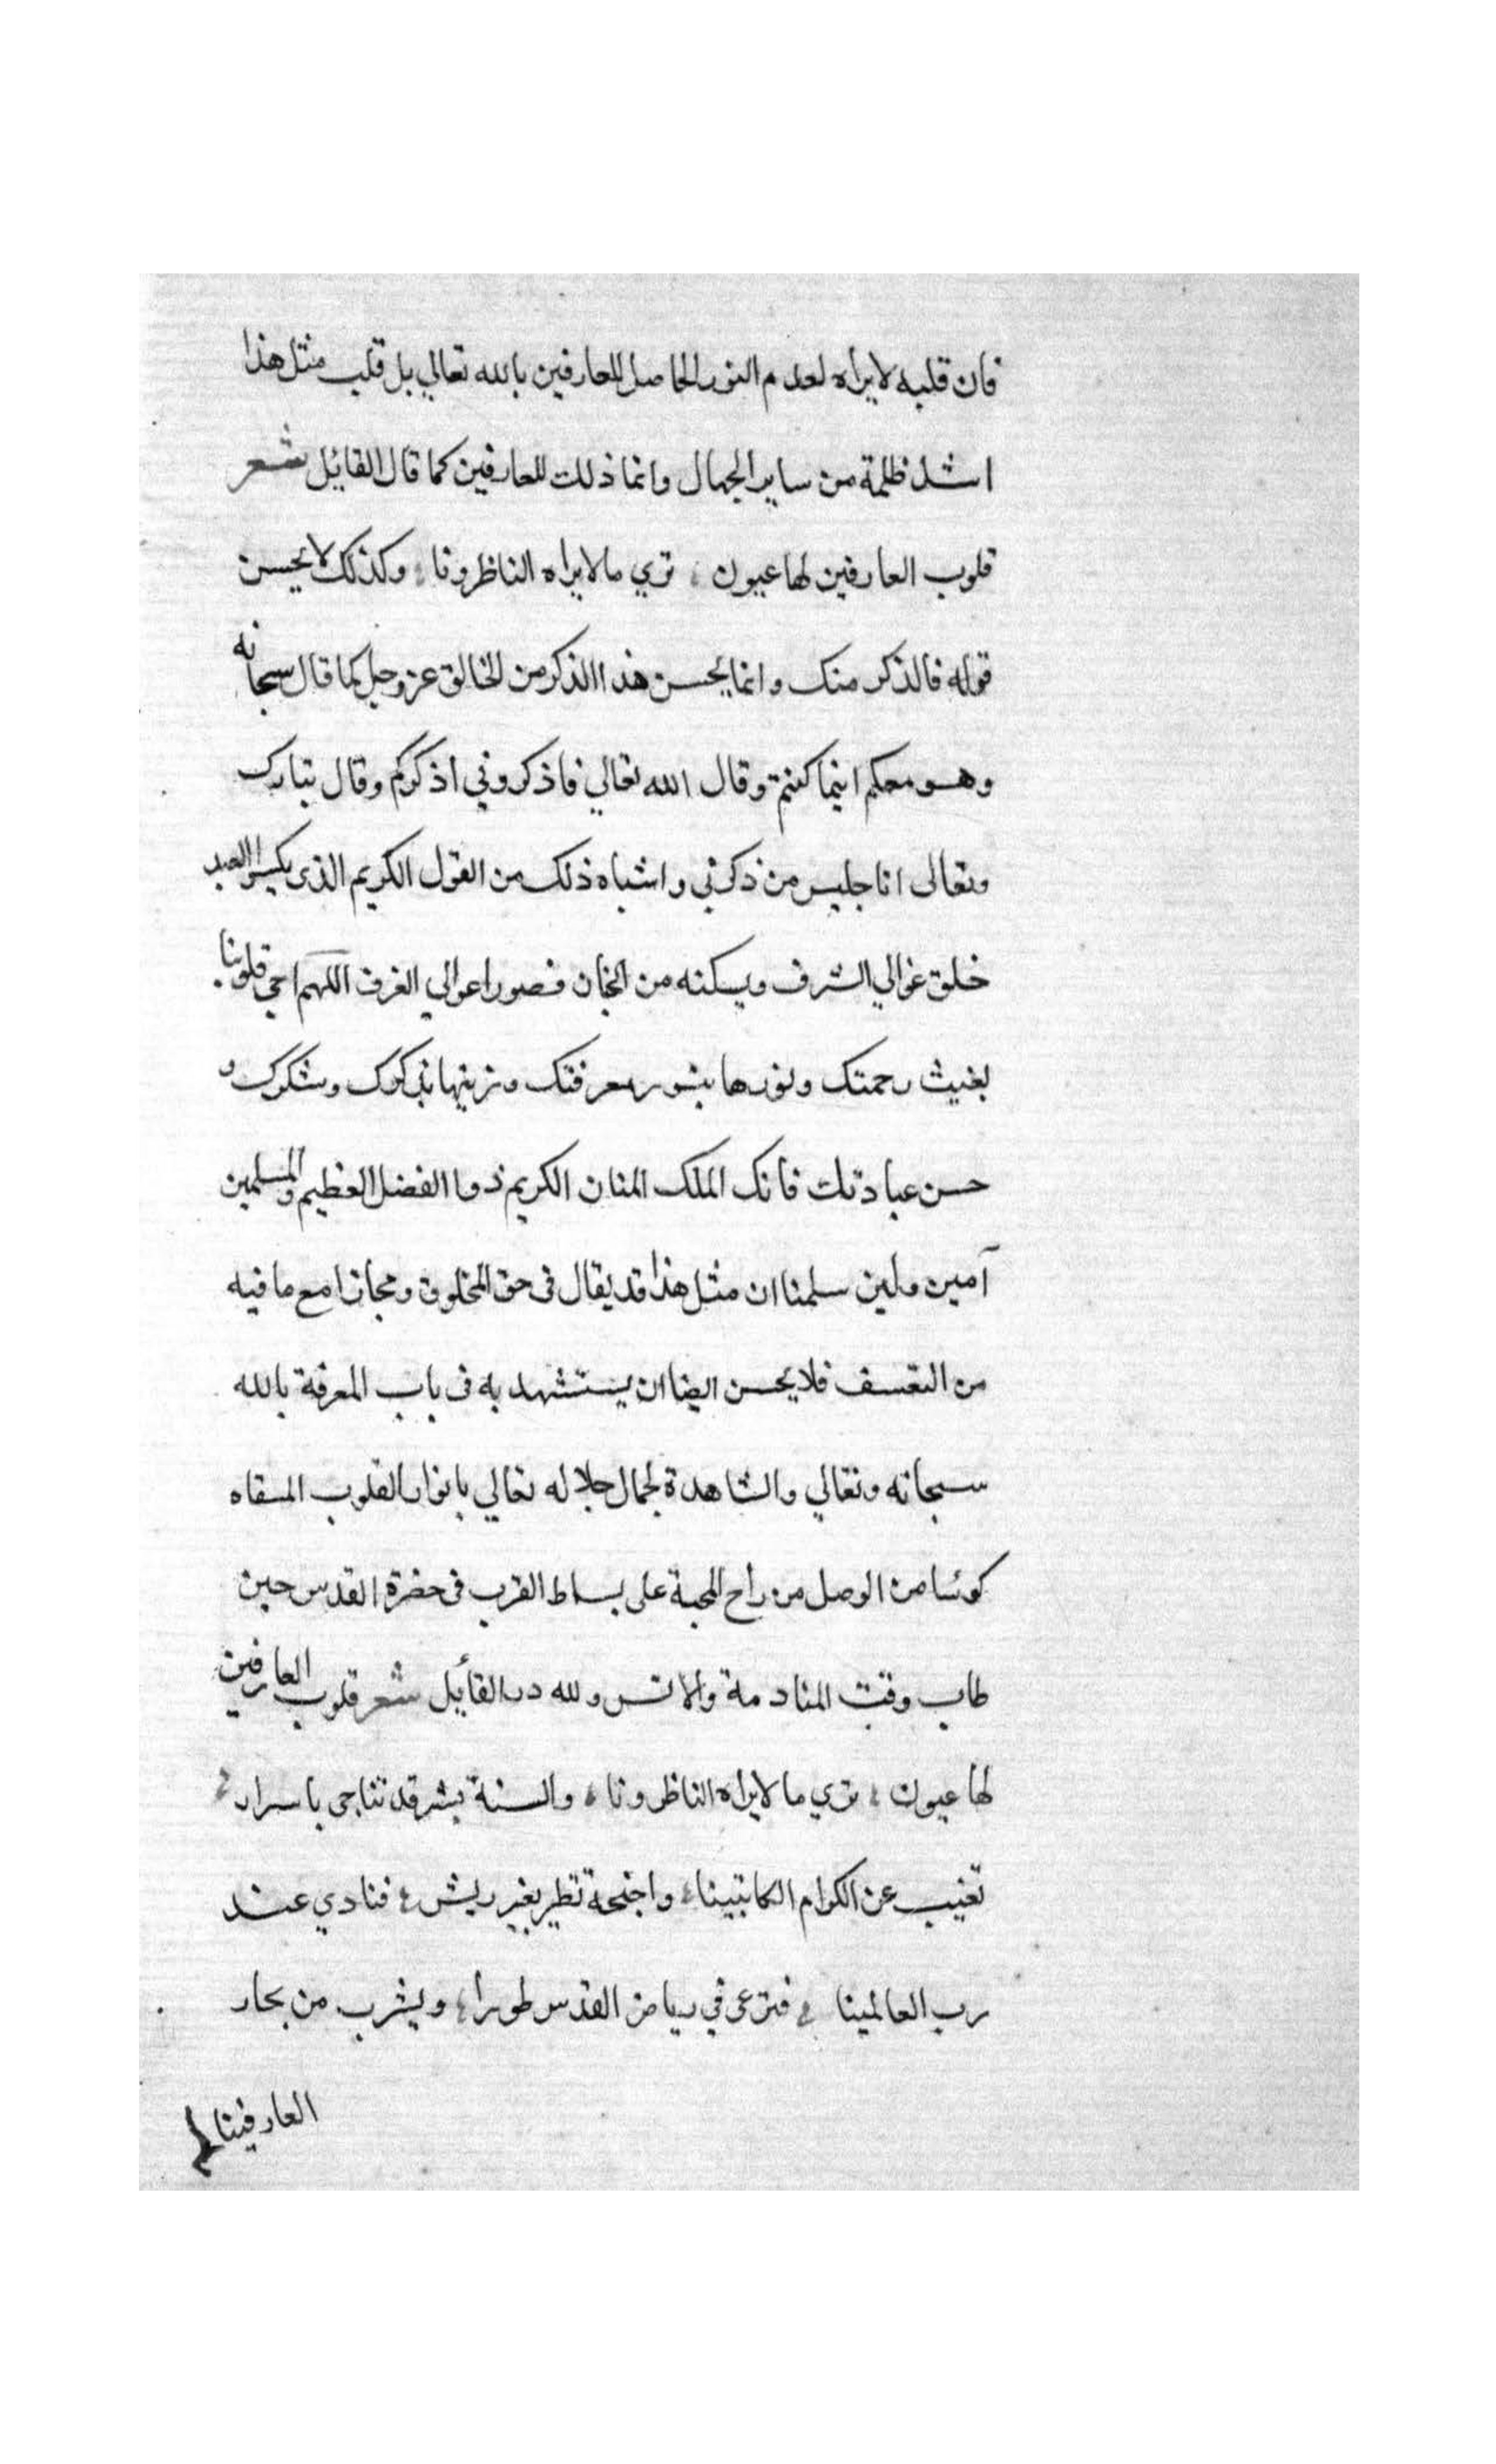 فان قلبه لايراه لعدم النور الحاصل للعارفين بالله تعالي بل قلب مثل هذا
اشد ظلمة من ساير الجهال وانما ذلك للعارفين كما قال القايل شعر
قلوب العارفين لها عيون ؛ تري ما لايراه الناظرونا ؛ وكذلك لا يحسن
قوله فالذكر منك وانما يحسن هذا الذكر من الخالق عز وجل كما قال سبحانه
وهو معكم اينما كنتم وقال الله تعالي فاذكروني اذكركم وقال تبارك
وتعالى انا جليس من ذكرني واشباه ذلك من القول الكريم الذي يكسوا العبد
خلق غوالي الشرف ويسكنه من الجنان قصورا عوالي الغرف اللهم احي قلوبنا
بغيث رحمتك ونورها بنور معرفتك وزينها بذكرك وشكرك و
حسن عبادتك فانك الملك المنان الكريم ذوا الفضل العظيم والمسلمين
آمين ولين سلمنا ان مثل هذا قد يقال في حق المخلوق ومجازا مع ما فيه
من التعسف فلا يحسن ايضا ان يستشهد به في باب المعرفة بالله
سبحانه وتعالي والشاهدة لجمال جلاله تعالي بانوار القلوب المسقاه
كوئسا من الوصل من راح المحبة على بساط القرب في حضرة القدس حين
طاب وقت المنادمة والانس ولله در القأيل شعر قلوب العارفين
لها عيون ؛ تري ما لايراه الناظرونا ؛ والسنة بشر قد تناجى باسرار ؛
تغيب عن الكرام الكاتبينا ؛ واجنحة تطير بغير ريش ؛ فنادي عند
رب العالمينا ؛ فترعى في رياض القدس طورا ؛ ويشرب من بحار
العارفينا